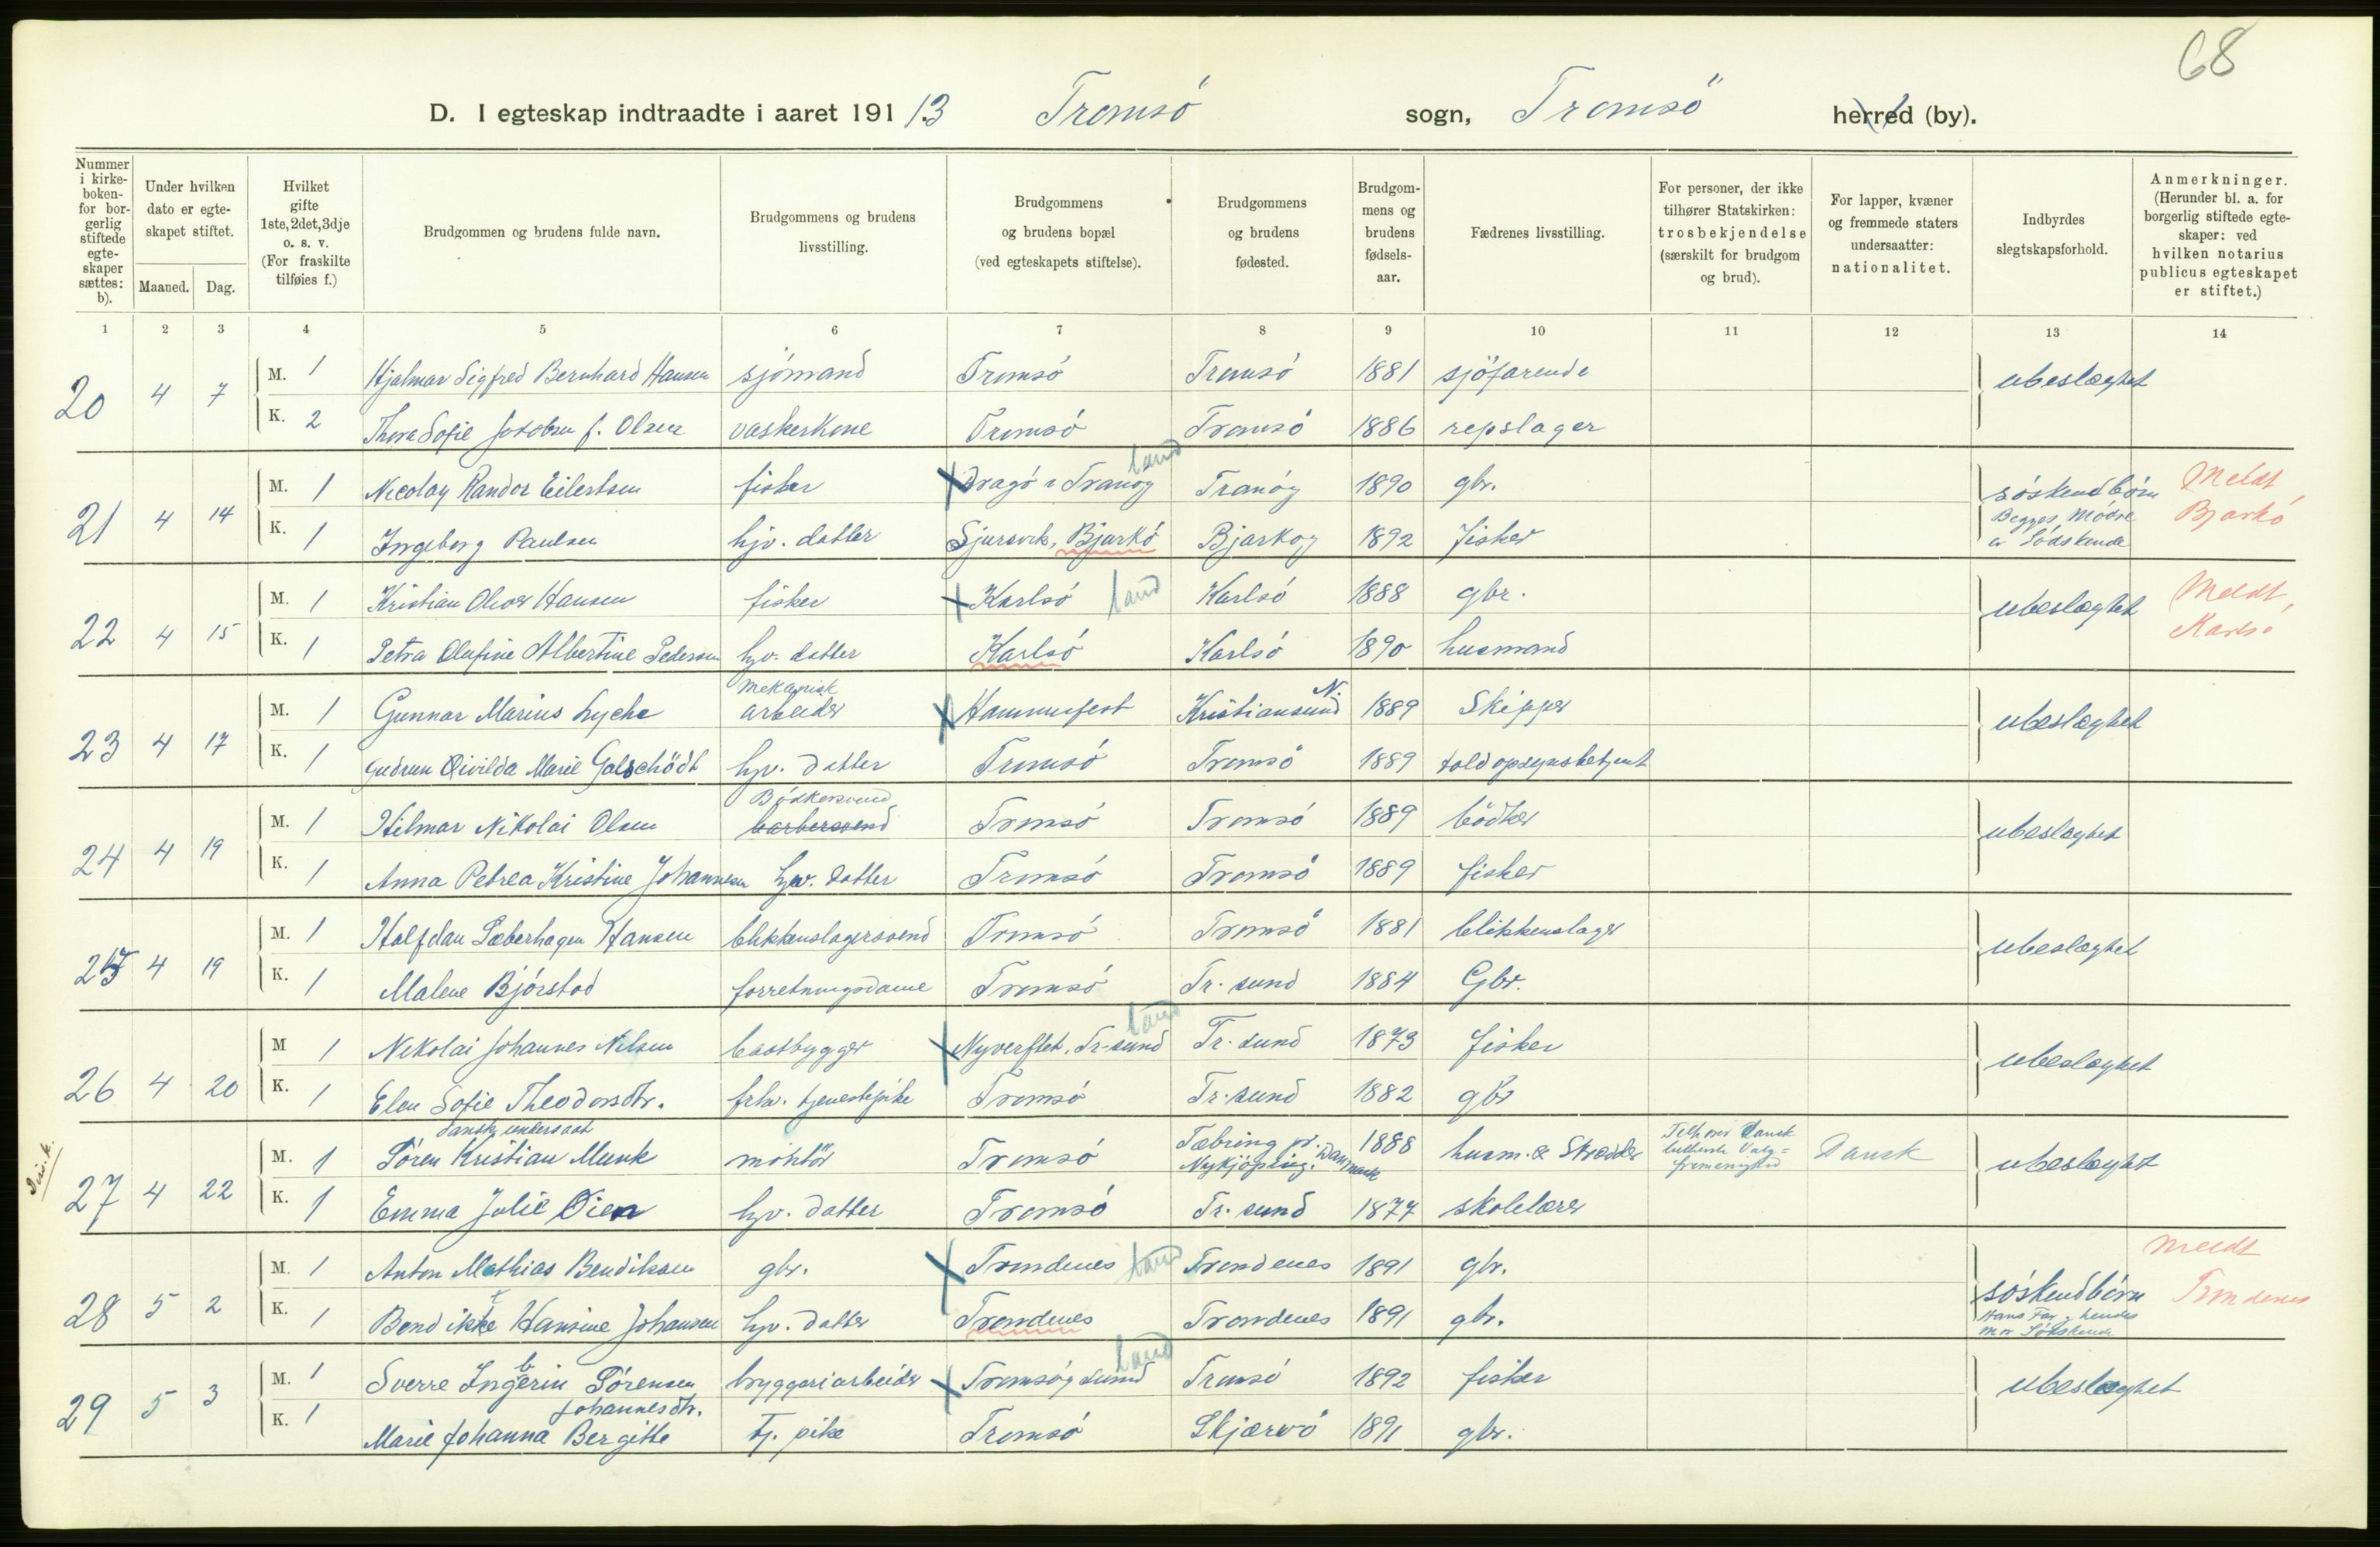 68
D. I egteskap indtraadte i aaret 1913 Tromsö sogn, Tromsö herred (by).
Nummer i kirkeboken- for borgerlig stiftede egteskaper sættes: b).
Under hvilken dato er egteskapet stiftet.
Maaned. Dag.
Hvilket gifte 1ste, 2det, 3dje o. s. v. (For fraskilte tilføies f.)
Brudgommen og brudens fulde navn.
Brudgommens og brudens livsstilling.
Brudgommens og brudens bopæl (ved egteskapets stiftelse).
Brudgommens og brudens fødested.
Brudgommens og brudens fødselsaar.
Fædrenes livsstilling.
For personer, der ikke tilhører Statskirken: trosbekjendelse (særskilt for brudgom og brud).
For lapper, kvæner og fremmede staters undersaatter: nationalitet.
Indbyrdes slegtskapsforhold.
Anmerkninger. (Herunder bl. a. for borgerlig stiftede egteskaper: ved hvilken notarius publicus egteskapet er stiftet.)
1 2 3 4 5 6 7 8 9 10 11 12 13 14
20 4 7 M. 1 Hjalmar Sigfred Bernhard Hansen sjömand Tromsö Tromsö 1881 sjöfarende ubeslægtet
K. 2 Thora Sofie Jakobsen f. Olsen vaskerkone Tromsö Tromsö 1886 repslager
21 4 14 M. 1 Nicolay Randor Eilertsen fisker Dragö i Tranöy land Tranöy 1890 gbr. söskendbörn Meldt
K. 1 Ingeborg Paulsen hjv. datter Sjursvik, Bjarkö Bjarköy 1892 fisker Begges Mödre er Södskende Bjarkö
22 4 15 M. 1 Kristian Oliver Hansen fisker Karlsö land Karlsö 1888 gbr. ubeslægtet Meldt,
K. 1 Petra Olufine Albertine Pedersen hjv. datter Karlsö Karlsö 1890 husmand Karlsö
23 4 17 M. 1 Gunnar Marius Lyche mekanisk arbeider Hammerfest Kristiansund N. 1889 Skipper ubeslægtet
K. 1 Gudrun Qivilda Marie Galschödt hjv. datter Tromsö Tromsö 1889 toldopsynsbetjent
24 4 19 M. 1 Hilmar Nikolai Olsen Bödkersvend barbersvend Tromsö Tromsö 1889 bödker ubeslægtet
K. 1 Anna Petrea Kristine Johannesen hjv. datter Tromsö Tromsö 1889 fisker
25 4 19 M. 1 Halfdan Sæberhagen Hansen blikkenslagersvend Tromsö Tromsö 1881 blikkenslager ubeslægtet
K. 1 Malene Bjørstad forretningsdame Tromsö Tr. sund 1884 Gbr.
26 4 20 M 1 Nikolai Johannes Nilsen baatbygger Nyverftet, Tr. sund land Tr. sund 1873 fisker ubeslægtet
K. 1 Elen Sofie Theodorsdtr. frhv. tjenestepike Tromsö Tr. sund 1882 gbr
27 4 22 M. 1 dansk undersaat Sören Kristian Munk montör Tromsö Tæbring pr. Nykjöping. Danmark 1888 husm. & Skrædder Tilhörer Dansk lutherske Valgfremenighed Dansk ubeslægtet
K. 1 Emma Julie Öien hjv. datter Tromsö Tr. sund 1877 skolelærer
28 5 2 M. 1 Anton Mathias Bendiksen gbr. Trondenes land Trondenes 1891 gbr. söskendbörn Meldt
K. 1 Bendikke Hansine Johansen hjv. datter Trondenes Trondenes 1891 gbr. Hans Far, hendes Mor Södskende Trondenes
29 5 3 M. 1 Sverre Ingebrin Sörensen bryggeriarbeider Tromsöysund land Tromsö 1892 fisker ubeslægtet
K. 1 Marie Johanna Bergitte Johannesdtr. tj. pike Tromsö Skjærvö 1891 gbr.